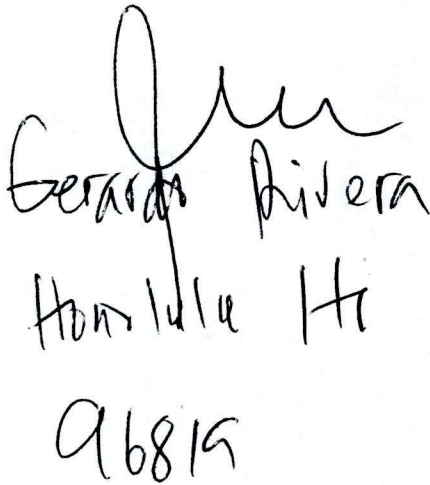 Gerardo Rivera
Honolulu HI
96819